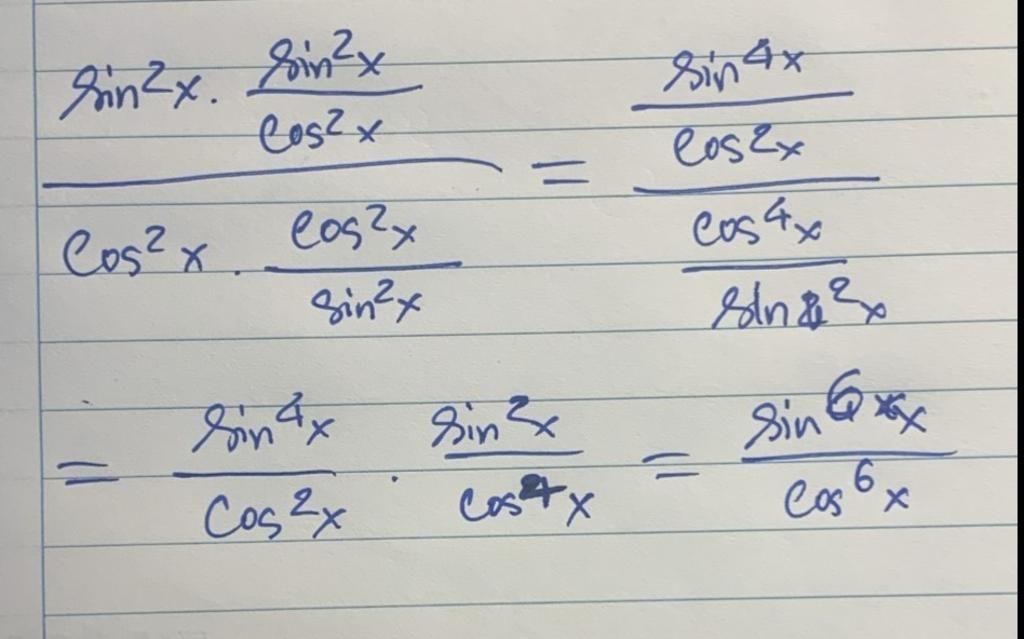 sin²x · sin²x / cos²x / cos²x · cos²x / sin²x = sin⁴x / cos²x / cos⁴x / sin²x
= sin⁴x / cos²x · sin²x / cos⁴x = sin⁶x / cos⁶x